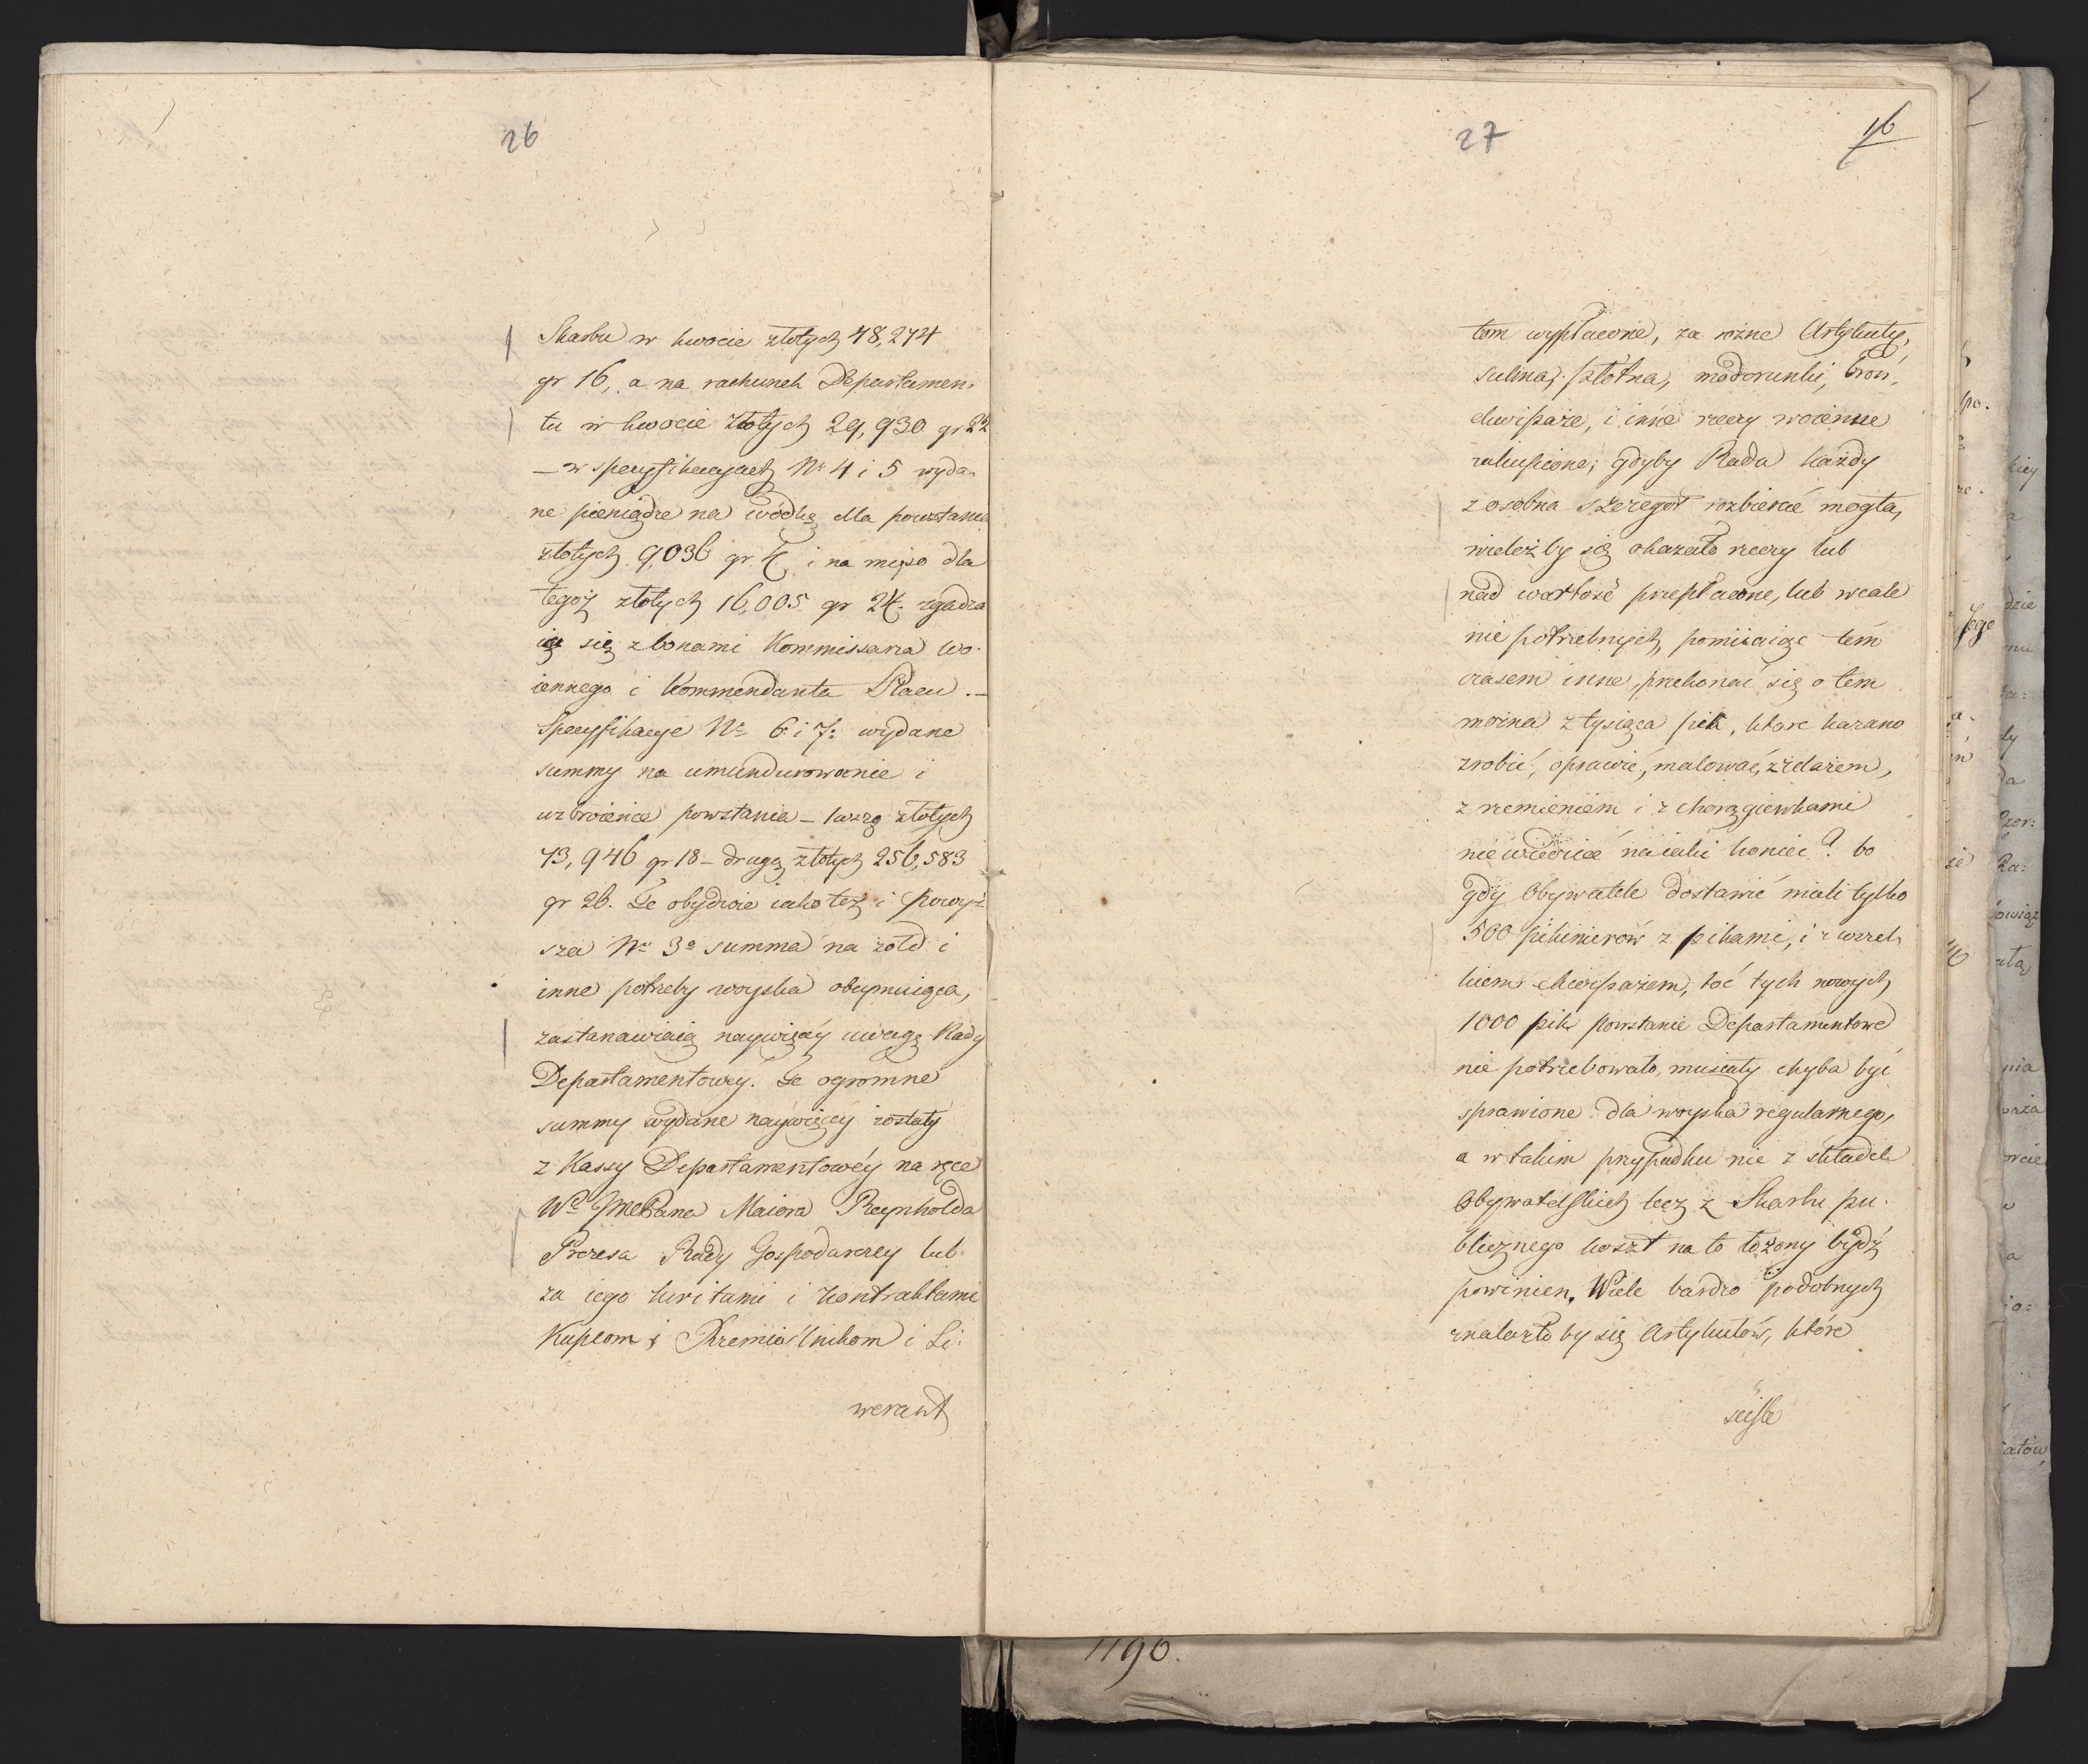 26
Skarbu w kwocie złotych 48,274
gr 16, a na rachunek Departamen-
tu w kwocie złotych 29,930 gr 22
– w specyfikacyach Nr 4 i 5 wyda-
ne pieniądze na wódkę dla powstania
złotych 9,036 gr 4, i na mięso dla
tegoż złotych 16,005 gr 24. zgadza
ią się z bonami Kommissarza wo-
iennego i Kommendanta Placu. –
Specyfikacye Nr 6. i 7: wydane
summy na umundurowanie i
uzbroienie powstania – 1wszą złotych
73,946 gr 18 – drugą złotych 256,583
gr 26. Że obydwie iako też i powyż-
sza Nr 3o summa na żołd i
inne potrzeby woyska obeymuiąca,
zastanawiaią naywięcéy uwagę Rady
Departamentowey. Że ogromne
summy wydane naywięcéy zostały
z Kassy Departamentowéy na ręce
We JmcPana Maiora Reynholda
Prezesa Rady Gospodarczey lub
za iego kwitami i kontraktami
Kupcom i Rzemieślnikom i Li-
werant
27
16
tom wypłacone, za rożne Artykuły,
sukna, płótna, moderunki, broń,
ekwipaże, i inne rzeczy woienne
zakupione; gdyby Rada każdy
z osobna szczegół rozbierać mogła,
wieleżby się okazało rzeczy lub
nad wartość przepłacone, lub wcale
nie potrzebnych, pomiiaiąc tém
czasem inne, przekonać się o tem
można z tysiąca pik, które kazano
zrobić, oprawić, malować, z żelazem,
z rzemieniem i z chorągiewkami
niewiedzieć na iaki koniec? bo
gdy Obywatele dostawić mieli tylko
500 pikinierów z pikami, i z wszel-
kiem ekwipażem, toć tych nowych
1000 pik powstanie Departamentowe
nie potrzebowało, musiały chyba być
sprawione dla woyska regularnego,
a w takim przypadku nie z składek
Obywatelskich lecz z Skarbu pu-
blicznego koszt na to łożony bydź
powinien. Wiele bardzo podobnych
znalazło by się Artykułów, które
ściśle
1190.